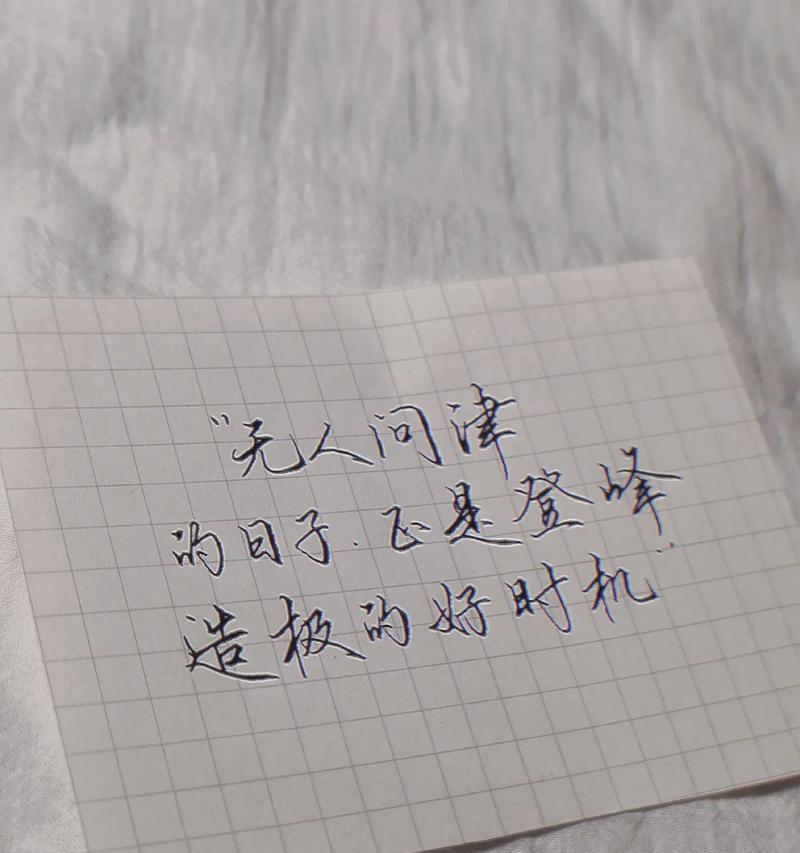 “无人问津
的日子.正是登峰
造极的好时机”